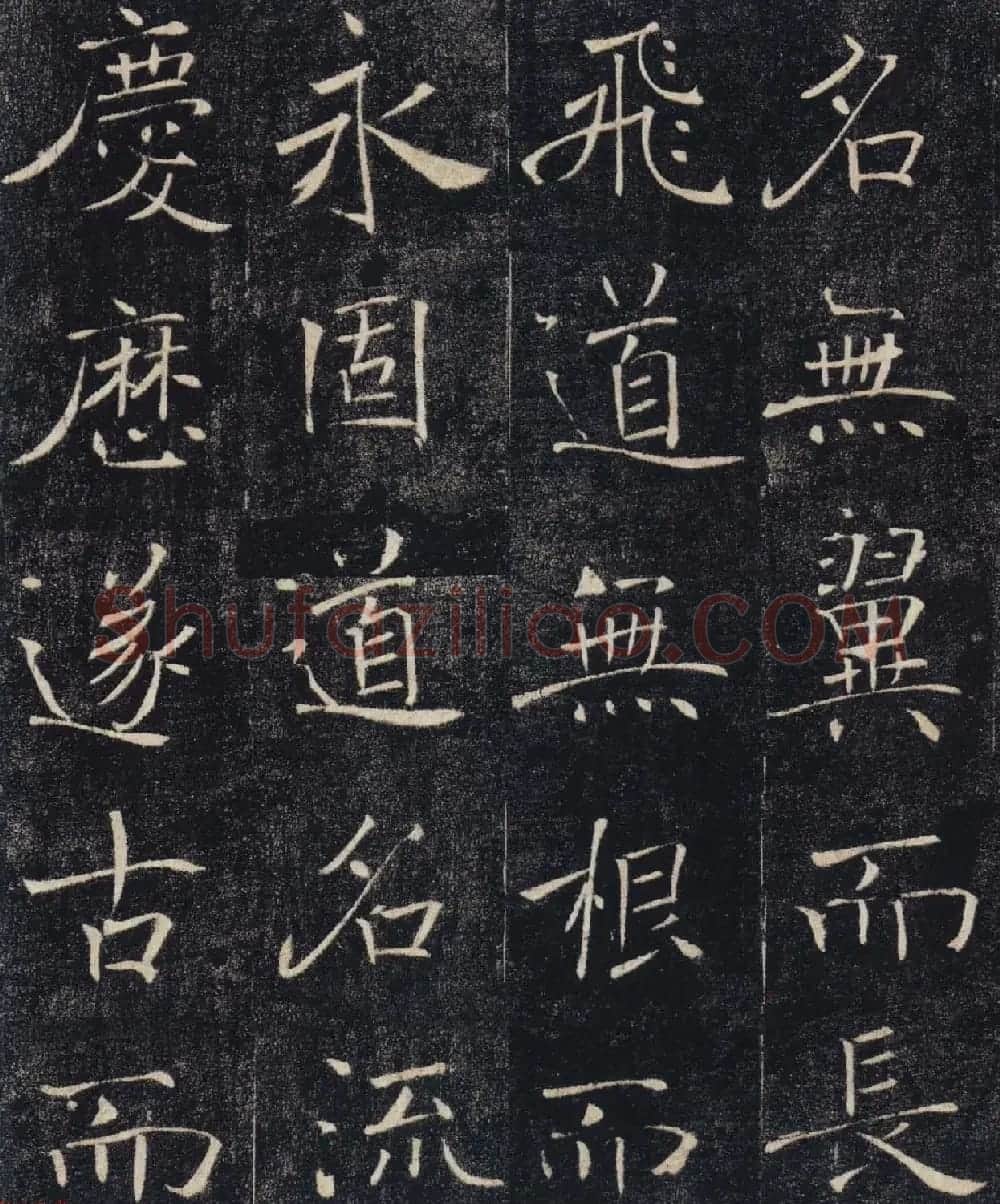 名無翼而長
飛道無根而
永固道名流
慶歷遂古而
Shufaziliao.COM